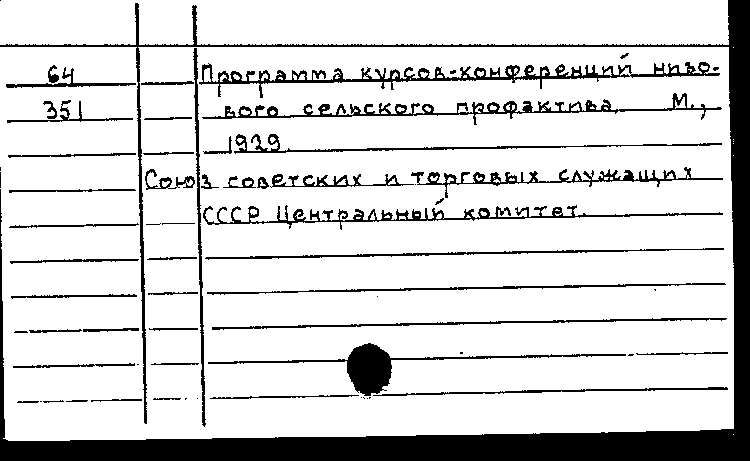 64 Программа курсов-конференций низо-
351 вого сельского профактива. М.,
1929.
Союз советских и торговых служащих
СССР. Центральный комитет.